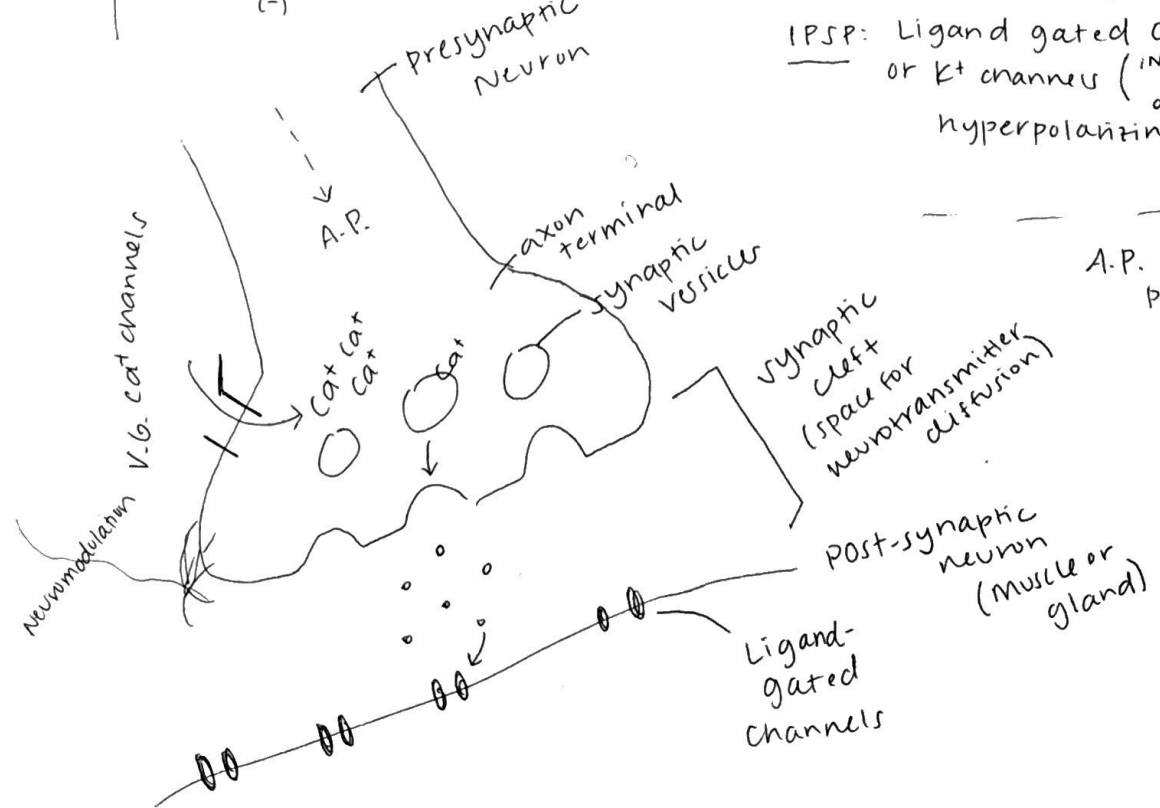 (-)
presynaptic
Neuron
IPSP: Ligand gated
or K+ channels (
hyperpolarizin
A.P.
axon
terminal
synaptic
vessicles
A.P.
V.G. Ca+ channels
Ca+ Ca+
Ca+
Ca+
synaptic
cleft
(space for
neurotransmitter
diffusion)
Neuromodulation
post-synaptic
neuron
(muscle or
gland)
Ligand-
gated
channels